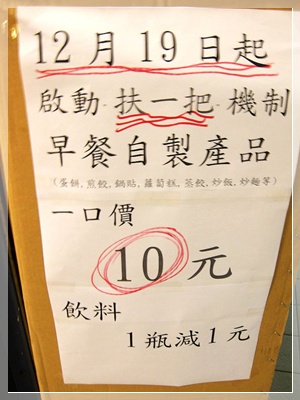 12月19日起
啟動 扶一把 機制
早餐自製產品
（蛋餅,煎餃,鍋貼,蘿蔔糕,蒸餃,炒飯,炒麵等）
一口價
10元
飲料
1瓶減1元